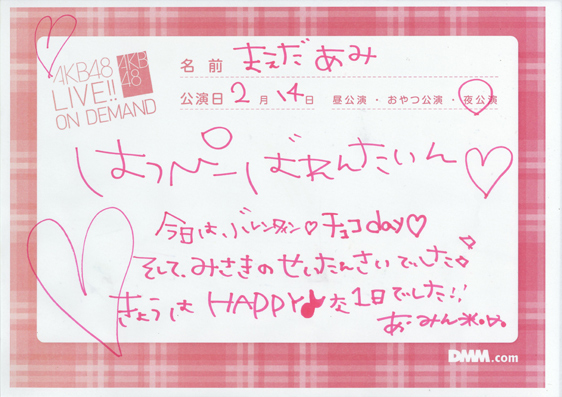 AKB48
LIVE!!
ON DEMAND
AKB
48
名前 まえだ あみ
公演日 2月 14日 昼公演・おやつ公演・夜公演
はっぴーばれんたいん♡
今日は、バレンタイン♡チョコday♡
そして、みさきのせいたんさいでした
きょうは HAPPY♪な1日でした!!
あーみん
DMM.com